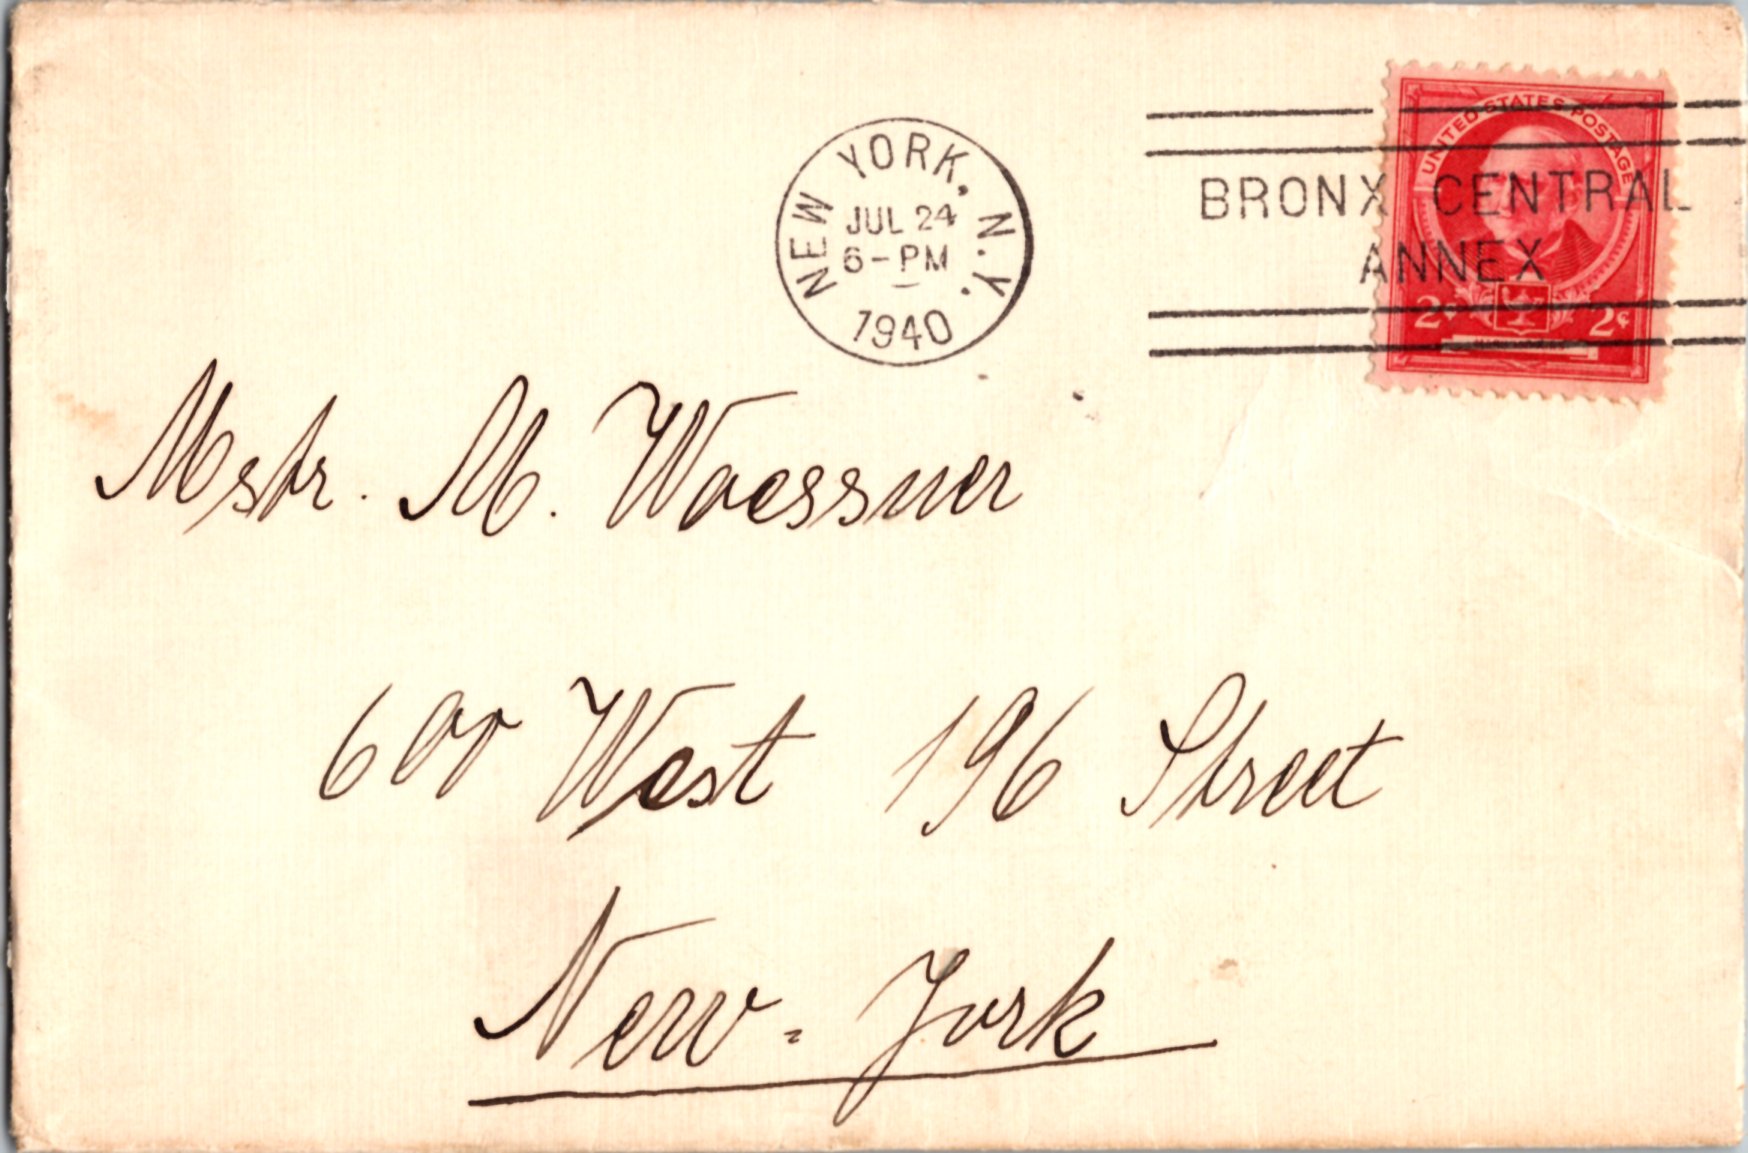 NEW YORK, N.Y.
JUL 24
6-PM
1940
UNITED STATES POSTAGE
BRONX CENTRAL
ANNEX
2¢ 2¢
Mstr. M. Woessner
600 West 196 Street
New-York